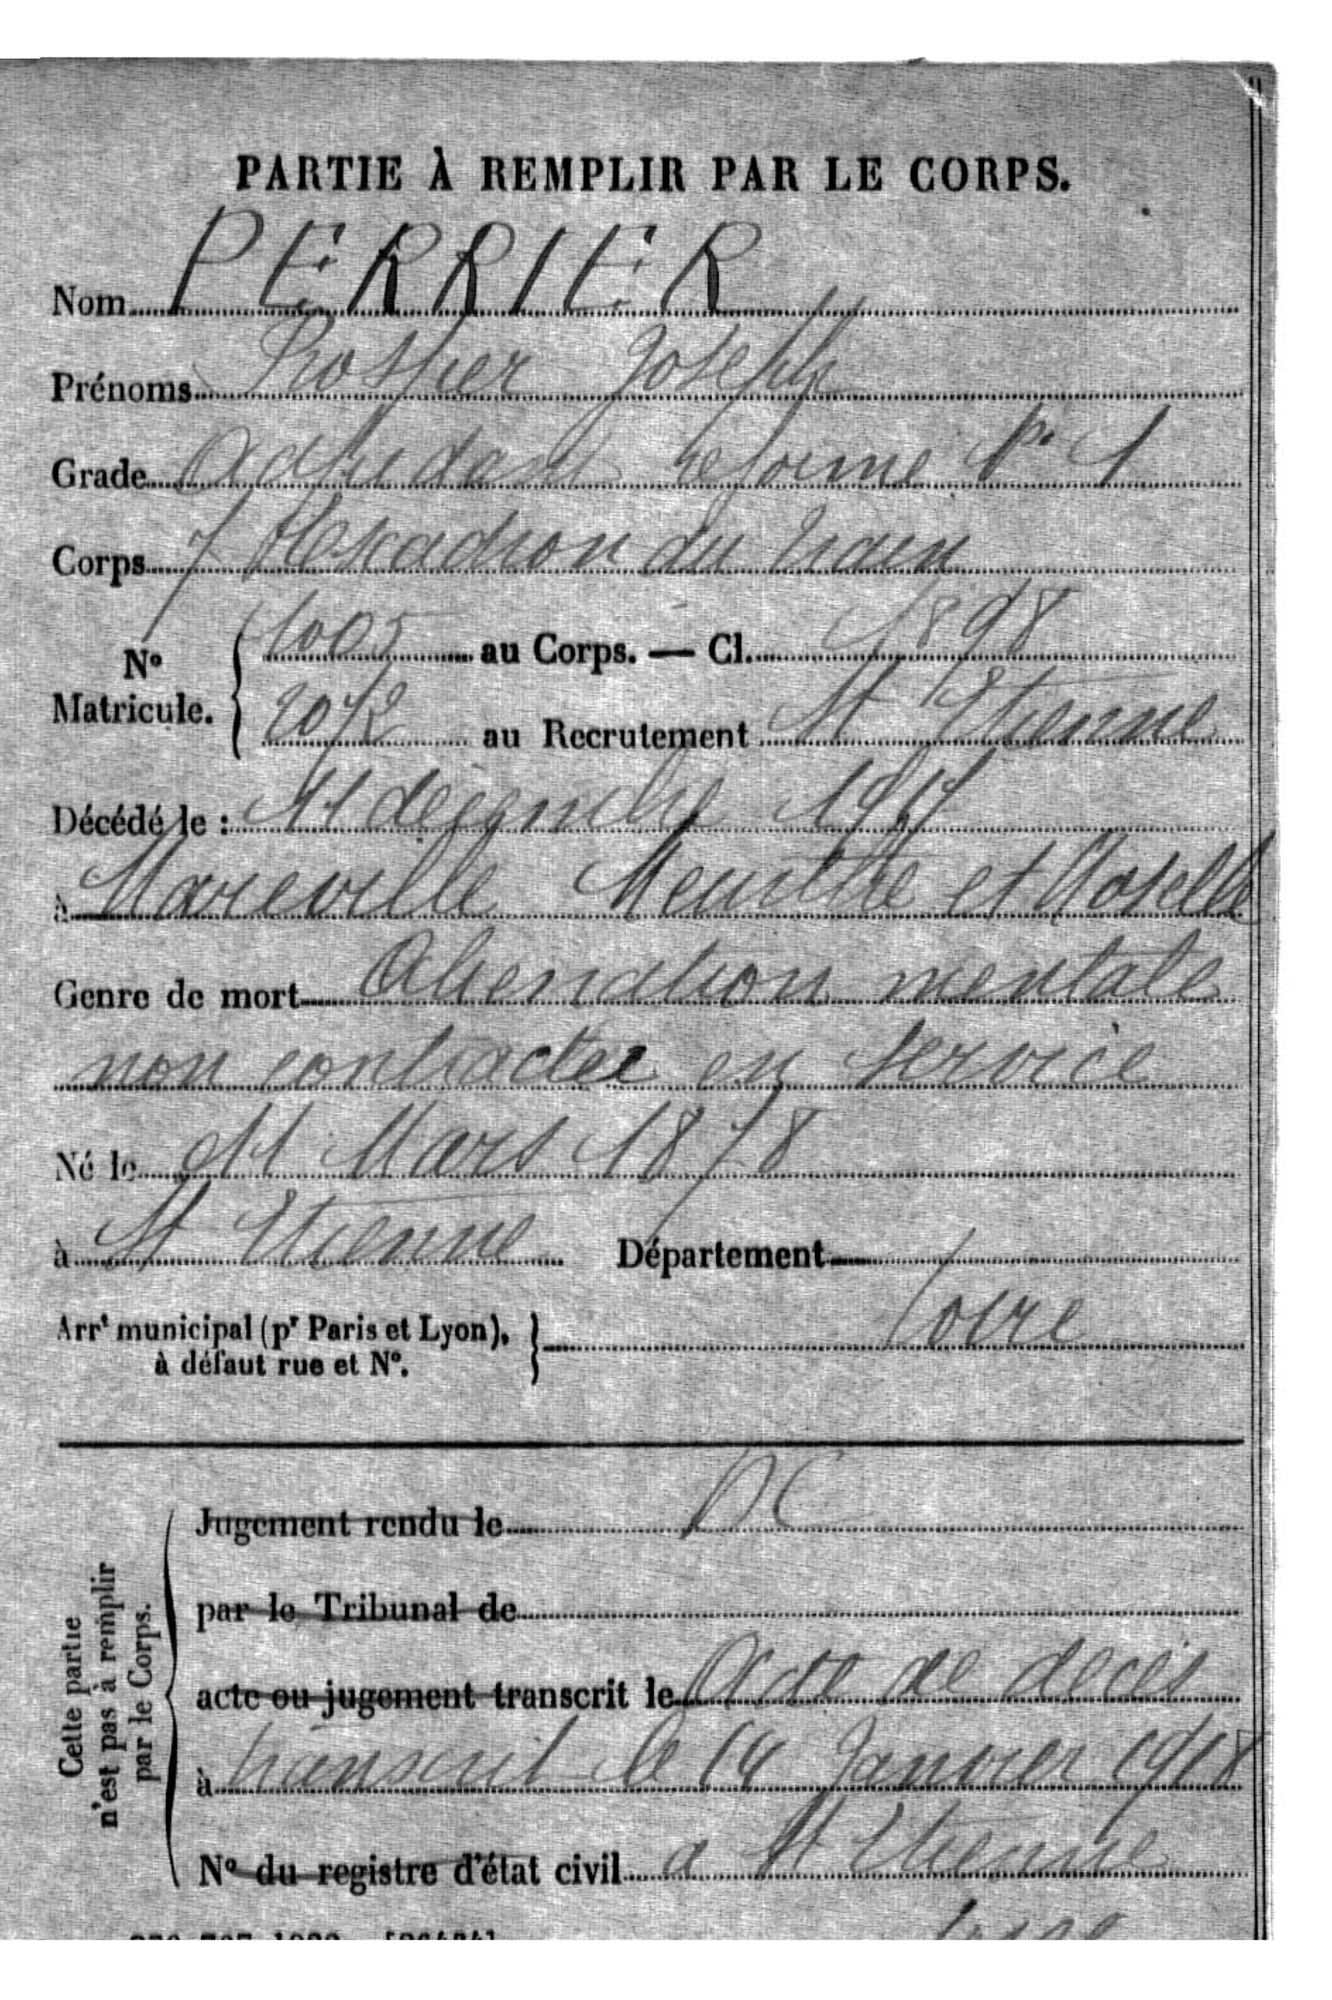 PARTIE À REMPLIR PAR LE CORPS.
Nom PERRIER
Prénoms Prosper Joseph
Grade Adjudant réforme N° 1
Corps 7 Escadron du train
N° Matricule. { 1005 au Corps. — Cl. 1898
2072 au Recrutement St Etienne
Décédé le : 11 décembre 1917
à Mareville Meurthe et Moselle
Genre de mort Alienation mentale
non contractée en service
Né le 11 Mars 1878
à St Etienne Département
Arrt municipal (pr Paris et Lyon), } Loire
à défaut rue et N°.
Jugement rendu le DC
par le Tribunal de
acte ou jugement transcrit le Acte de decès
à transcrit le 14 Janvier 1918
N° du registre d'état civil à St Etienne
Loire
Cette partie
n'est pas à remplir
par le Corps.